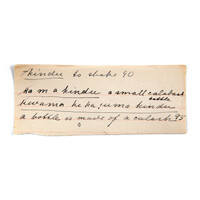 kinder to shake 90
ka m a kinder a small calabash
bottle
kuwama he ka; uma kinder
a bottle is made of a calash 95